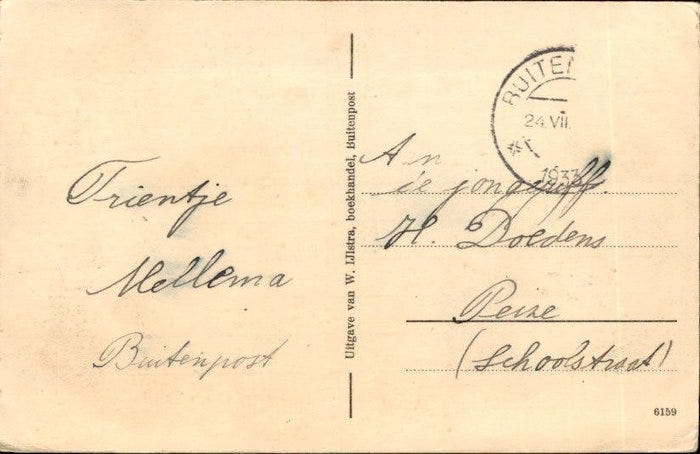 Trientje
Mellema
Buitenpost
Uitgave van W. IJlstra, boekhandel, Buitenpost
BUITEN
24.VII.
1933
An
de jongejuff.
H. Doedens
Peize
(Schoolstraat)
6159